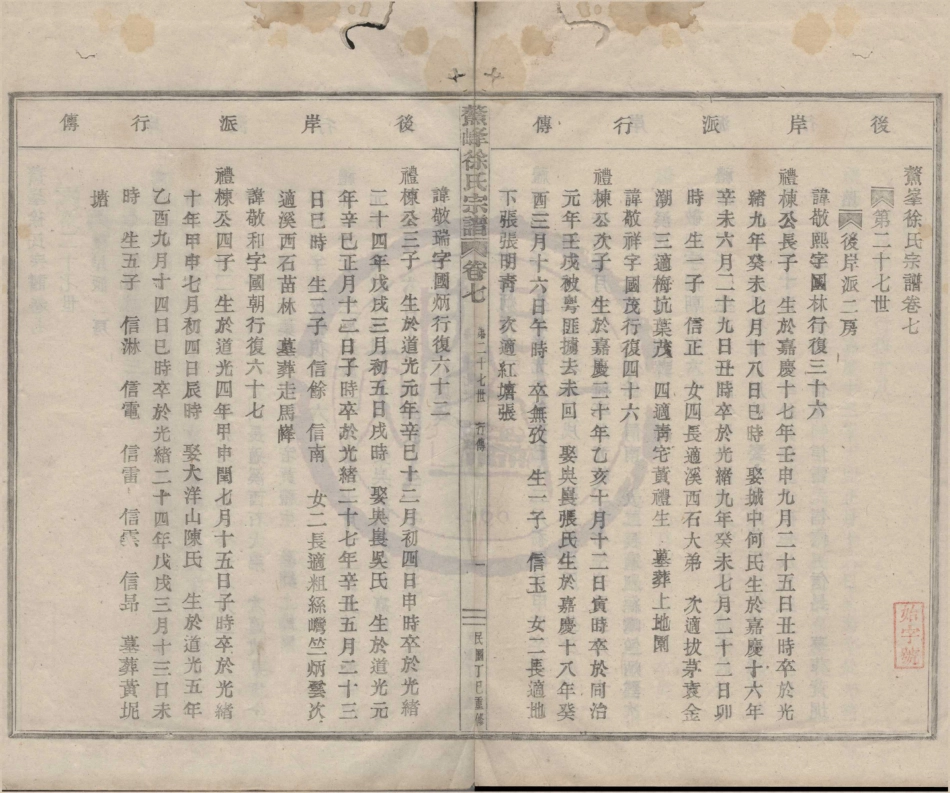 後岸派行傳
鰲峯徐氏宗譜卷七
第二十七世
後岸派二房
諱敬熙字國林行復三十六
禮棟公長子 生於嘉慶十七年壬申九月二十五日丑時卒於光
緒九年癸未七月十八日巳時 娶城中何氏生於嘉慶十六年
辛未六月二十九日丑時卒於光緒九年癸未七月二十二日卯
時 生一子 信正 女四長適溪西石大弟 次適拔茅袁金
潮 三適梅坑葉茂 四適靑宅黃禮生 墓葬上地園
諱敬祥字國茂行復四十六
禮棟公次子 生於嘉慶二十年乙亥十月十二日寅時卒於同治
元年壬戌被粵匪擄去未回 娶與嵊張氏生於嘉慶十八年癸
酉三月十六日午時 卒無攷 生一子 信玉 女二長適地
下張張明靑 次適紅塘張
始字號
鰲峰徐氏宗譜
卷七
第二十七世 行傳
一
民國丁巳重修
後岸派行傳
諱敬瑞字國炳行復六十二
禮棟公三子 生於道光元年辛巳十二月初四日申時卒於光緒
二十四年戊戌三月初五日戌時 娶奧嵊吳氏 生於道光元
年辛巳正月十二日子時卒於光緒二十七年辛丑五月二十三
日巳時 生二子 信餘 信南 女二長適粗絲嶴竺炳雲次
適溪西石苗林 墓葬走馬峰
諱敬和字國朝行復六十七
禮棟公四子 生於道光四年甲申閏七月十五日子時卒於光緒
十年甲申七月初四日辰時 娶大洋山陳氏 生於道光五年
乙酉九月十四日巳時卒於光緒二十四年戊戌三月十三日未
時 生五子 信淋 信電 信雷 信雲 信昻 墓葬黃坭
塘